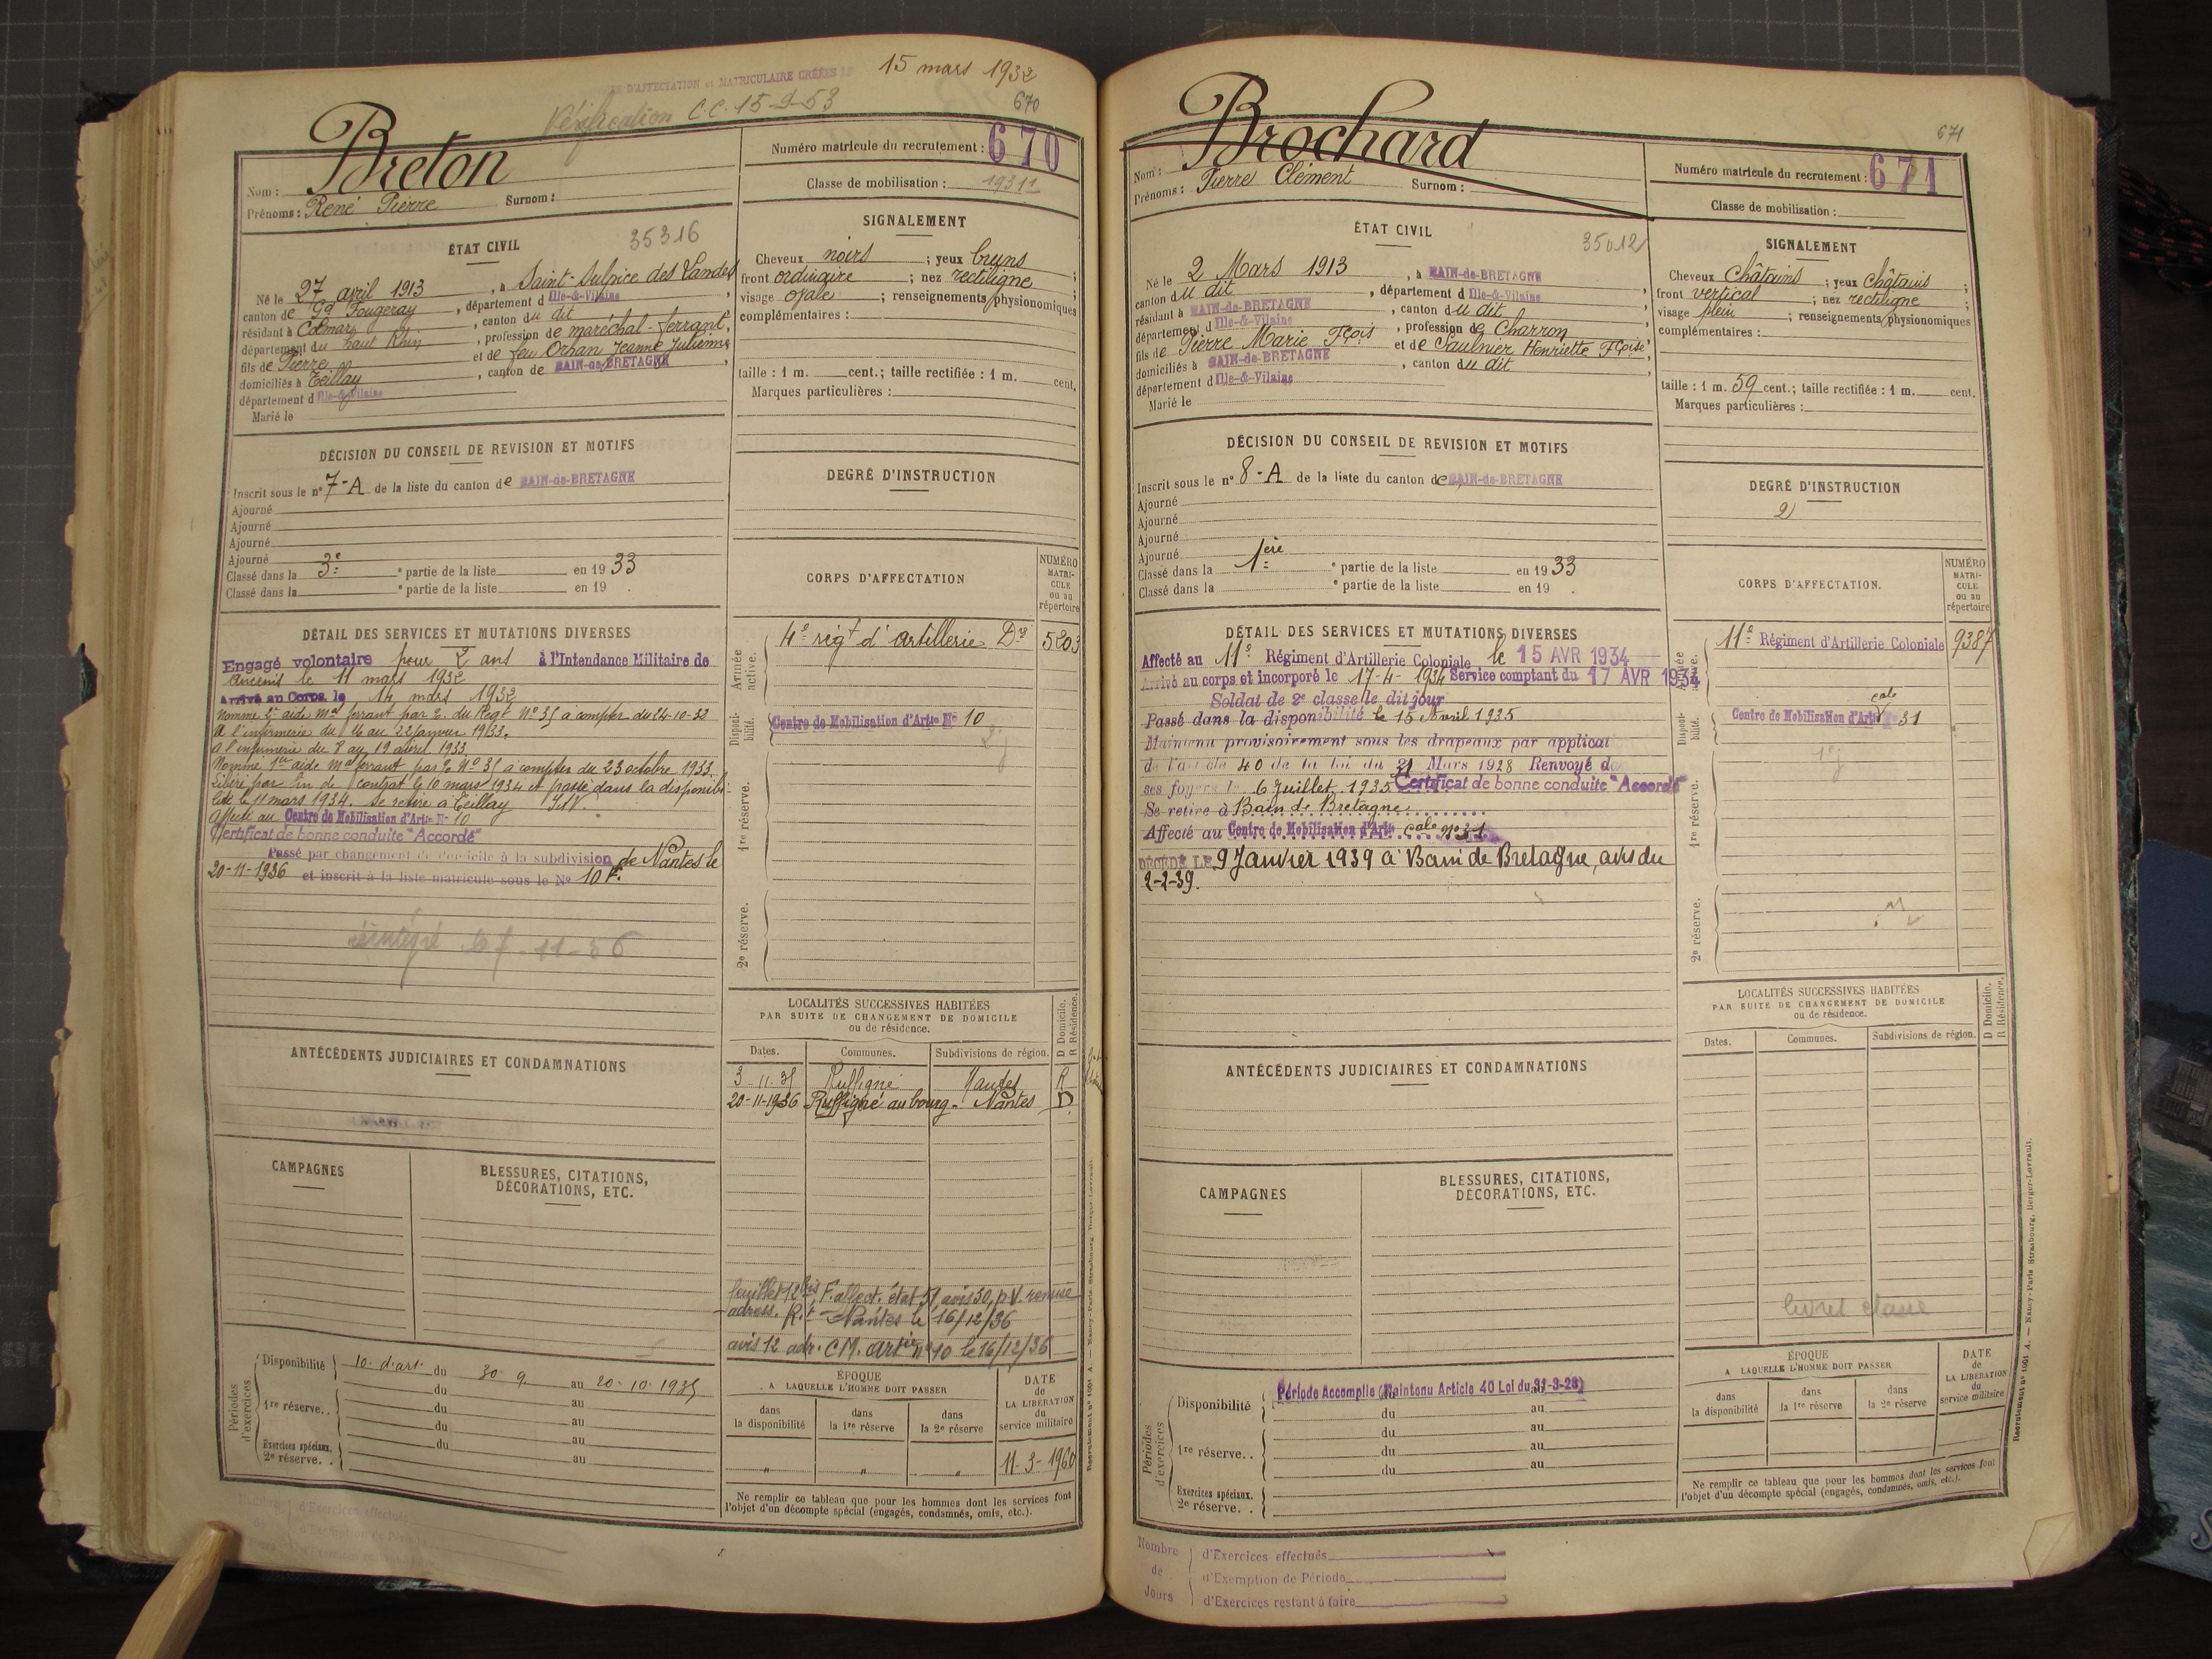 15 mars 1932
D'AFFECTATION et MATRICULAIRE CRÉÉES LE
Vérification C.C. 15-9-53
670
Breton
Nom :
Prénoms : René Pierre Surnom :
Numéro matricule du recrutement : 670
Classe de mobilisation : 1931
ÉTAT CIVIL
35316
Né le 27 avril 1913, à Saint-Sulpice des Landes
canton de Gd Fougeray, département d Ille-&-Vilaine,
résidant à Colmar, canton du dit
département du haut Rhin, profession de maréchal-ferrant,
fils de Pierre et de feu Orhan Jeanne Julienne
domiciliés à Teillay, canton de BAIN-de-BRETAGNE,
département d Ille-&-Vilaine
Marié le
SIGNALEMENT
Cheveux noirs ; yeux bruns ;
front ordinaire ; nez rectiligne ;
visage ovale ; renseignements physionomiques
complémentaires :
taille : 1 m. cent.; taille rectifiée : 1 m. cent.
Marques particulières :
DÉCISION DU CONSEIL DE REVISION ET MOTIFS
Inscrit sous le n° 7-A de la liste du canton de BAIN-de-BRETAGNE
Ajourné
Ajourné
Ajourné
Ajourné
Classé dans la 3e ° partie de la liste en 1933
Classé dans la ° partie de la liste en 19 .
DEGRÉ D'INSTRUCTION
CORPS D'AFFECTATION
NUMÉRO MATRI- CULE ou au répertoire
Armée active.
4e régt d'artillerie Dre 5203
Disponi- bilité.
Centre de Mobilisation d'Artie N° 10
1re réserve.
2e réserve.
DÉTAIL DES SERVICES ET MUTATIONS DIVERSES
Engagé volontaire pour 2 ans à l'Intendance Militaire de
Ancenis le 11 mars 1932
Arrivé au Corps le 14 mars 1932
Nommé 2e aide Mal ferrant par O. du Régt N° 35 à compter du 24-10-32
A l'infirmerie du 16 au 22 janvier 1933.
A l'infirmerie du 8 au 19 avril 1933
Nommé 1er aide Mal ferrant par O N° 35 à compter du 23 octobre 1933
Libéré par fin de contrat le 10 mars 1934 et passé dans la disponibi-
lité le 11 mars 1934. Se retire à Teillay
Affecté au Centre de Mobilisation d'Artie N° 10
Certificat de bonne conduite "Accordé"
Passé par changement de domicile à la subdivision de Nantes le
20-11-1936 et inscrit à la liste matricule sous le N° 10 F.
réintégré le 7-11-36
LOCALITÉS SUCCESSIVES HABITÉES
PAR SUITE DE CHANGEMENT DE DOMICILE
ou de résidence.
D Domicile.
R Résidence.
Dates. Communes. Subdivisions de région.
3-11-35 Ruffigné Nantes R
20-11-1936 Ruffigné au bourg - Nantes D
ANTÉCÉDENTS JUDICIAIRES ET CONDAMNATIONS
CAMPAGNES
BLESSURES, CITATIONS,
DÉCORATIONS, ETC.
feuillet 12 bis F. affect. état 51 avis 30, p.V. remise
adress. Rt - Nantes le 16/12/36
avis 12 adr. C M. artie n° 10 le 16/12/36
Périodes d'exercices
Disponibilité 10e d'art. du 30-9 au 20-10-1935
du au
1re réserve.. du au
du au
Exercices spéciaux. du au
2e réserve. .
ÉPOQUE
A LAQUELLE L'HOMME DOIT PASSER
dans la disponibilité
dans la 1re réserve
dans la 2e réserve
DATE de LA LIBÉRATION du service militaire
" " " 11-3-1960
Ne remplir ce tableau que pour les hommes dont les services font
l'objet d'un décompte spécial (engagés, condamnés, omis, etc.).
Nombre de
d'Exercices effectués
d'Exemption de Période
671
Brochard
Nom :
Prénoms : Pierre Clément Surnom :
Numéro matricule du recrutement : 671
Classe de mobilisation :
ÉTAT CIVIL
35012
Né le 2 Mars 1913, à BAIN-de-BRETAGNE
canton du dit, département d Ille-&-Vilaine,
résidant à BAIN-de-BRETAGNE, canton du dit,
département d Ille-&-Vilaine, profession de Charron,
fils de Pierre Marie Fçois et de Saulnier Henriette Fçoise
domiciliés à BAIN-de-BRETAGNE, canton du dit,
département d Ille-&-Vilaine
Marié le
SIGNALEMENT
Cheveux Châtains ; yeux châtains ;
front vertical ; nez rectiligne ;
visage plein ; renseignements physionomiques
complémentaires :
taille : 1 m. 59 cent.; taille rectifiée : 1 m. cent.
Marques particulières :
DÉCISION DU CONSEIL DE REVISION ET MOTIFS
Inscrit sous le n° 8-A de la liste du canton de BAIN-de-BRETAGNE
Ajourné
Ajourné
Ajourné
Ajourné
Classé dans la 1ère ° partie de la liste en 1933
Classé dans la ° partie de la liste en 19 .
DEGRÉ D'INSTRUCTION
2
CORPS D'AFFECTATION.
NUMÉRO MATRI- CULE ou au répertoire
11e Régiment d'Artillerie Coloniale 9387
Disponi- bilité.
Centre de Mobilisation d'Artie cale 31
1re réserve.
2e réserve.
DÉTAIL DES SERVICES ET MUTATIONS DIVERSES
Affecté au 11e Régiment d'Artillerie Coloniale le 15 AVR 1934
Arrivé au corps et incorporé le 17-4-1934 Service comptant du 17 AVR 1934
Soldat de 2e classe le dit jour
Passé dans la disponibilité le 15 Avril 1935
Maintenu provisoirement sous les drapeaux par applicat
de l'article 40 de la loi du 31 Mars 1928 Renvoyé d
ses foyers le 6 Juillet 1935 Certificat de bonne conduite "Accordé"
Se retire à Bain de Bretagne
Affecté au Centre de Mobilisation d'Artie cale n° 31
DÉCÉDÉ LE 9 Janvier 1939 à Bain de Bretagne, avis du
2-2-39.
LOCALITÉS SUCCESSIVES HABITÉES
PAR SUITE DE CHANGEMENT DE DOMICILE
ou de résidence.
D Domicile.
R Résidence.
Dates. Communes. Subdivisions de région.
ANTÉCÉDENTS JUDICIAIRES ET CONDAMNATIONS
CAMPAGNES
BLESSURES, CITATIONS,
DÉCORATIONS, ETC.
livret classé
Périodes d'exercices
Disponibilité Période Accomplie (Maintenu Article 40 Loi du 31-3-28)
du au
du au
1re réserve.. du au
du au
Exercices spéciaux.
2e réserve. .
ÉPOQUE
A LAQUELLE L'HOMME DOIT PASSER
dans la disponibilité
dans la 1re réserve
dans la 2e réserve
DATE de LA LIBÉRATION du service militaire
Ne remplir ce tableau que pour les hommes dont les services font
l'objet d'un décompte spécial (engagés, condamnés, omis, etc.).
Nombre de Jours
d'Exercices effectués
d'Exemption de Période
d'Exercices restant à faire